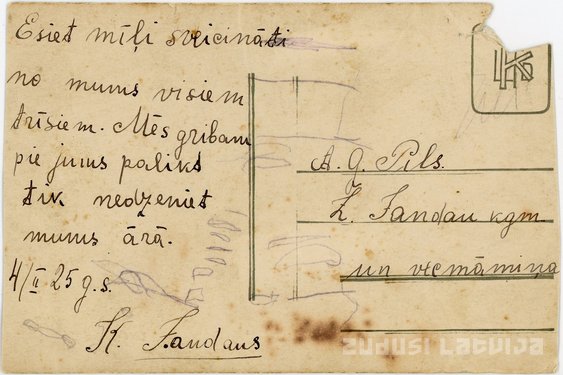 Esiet mīļi sveicināti
no mums visiem
trīsiem. Mēs gribam
pie jums palikt
tik nedzeniet
mums ārā.
4/II 25 g.s.
K. Jandaus
A. G. Pils.
Z. Jandau kgm
un vecmāmiņa
zudusi Latvija